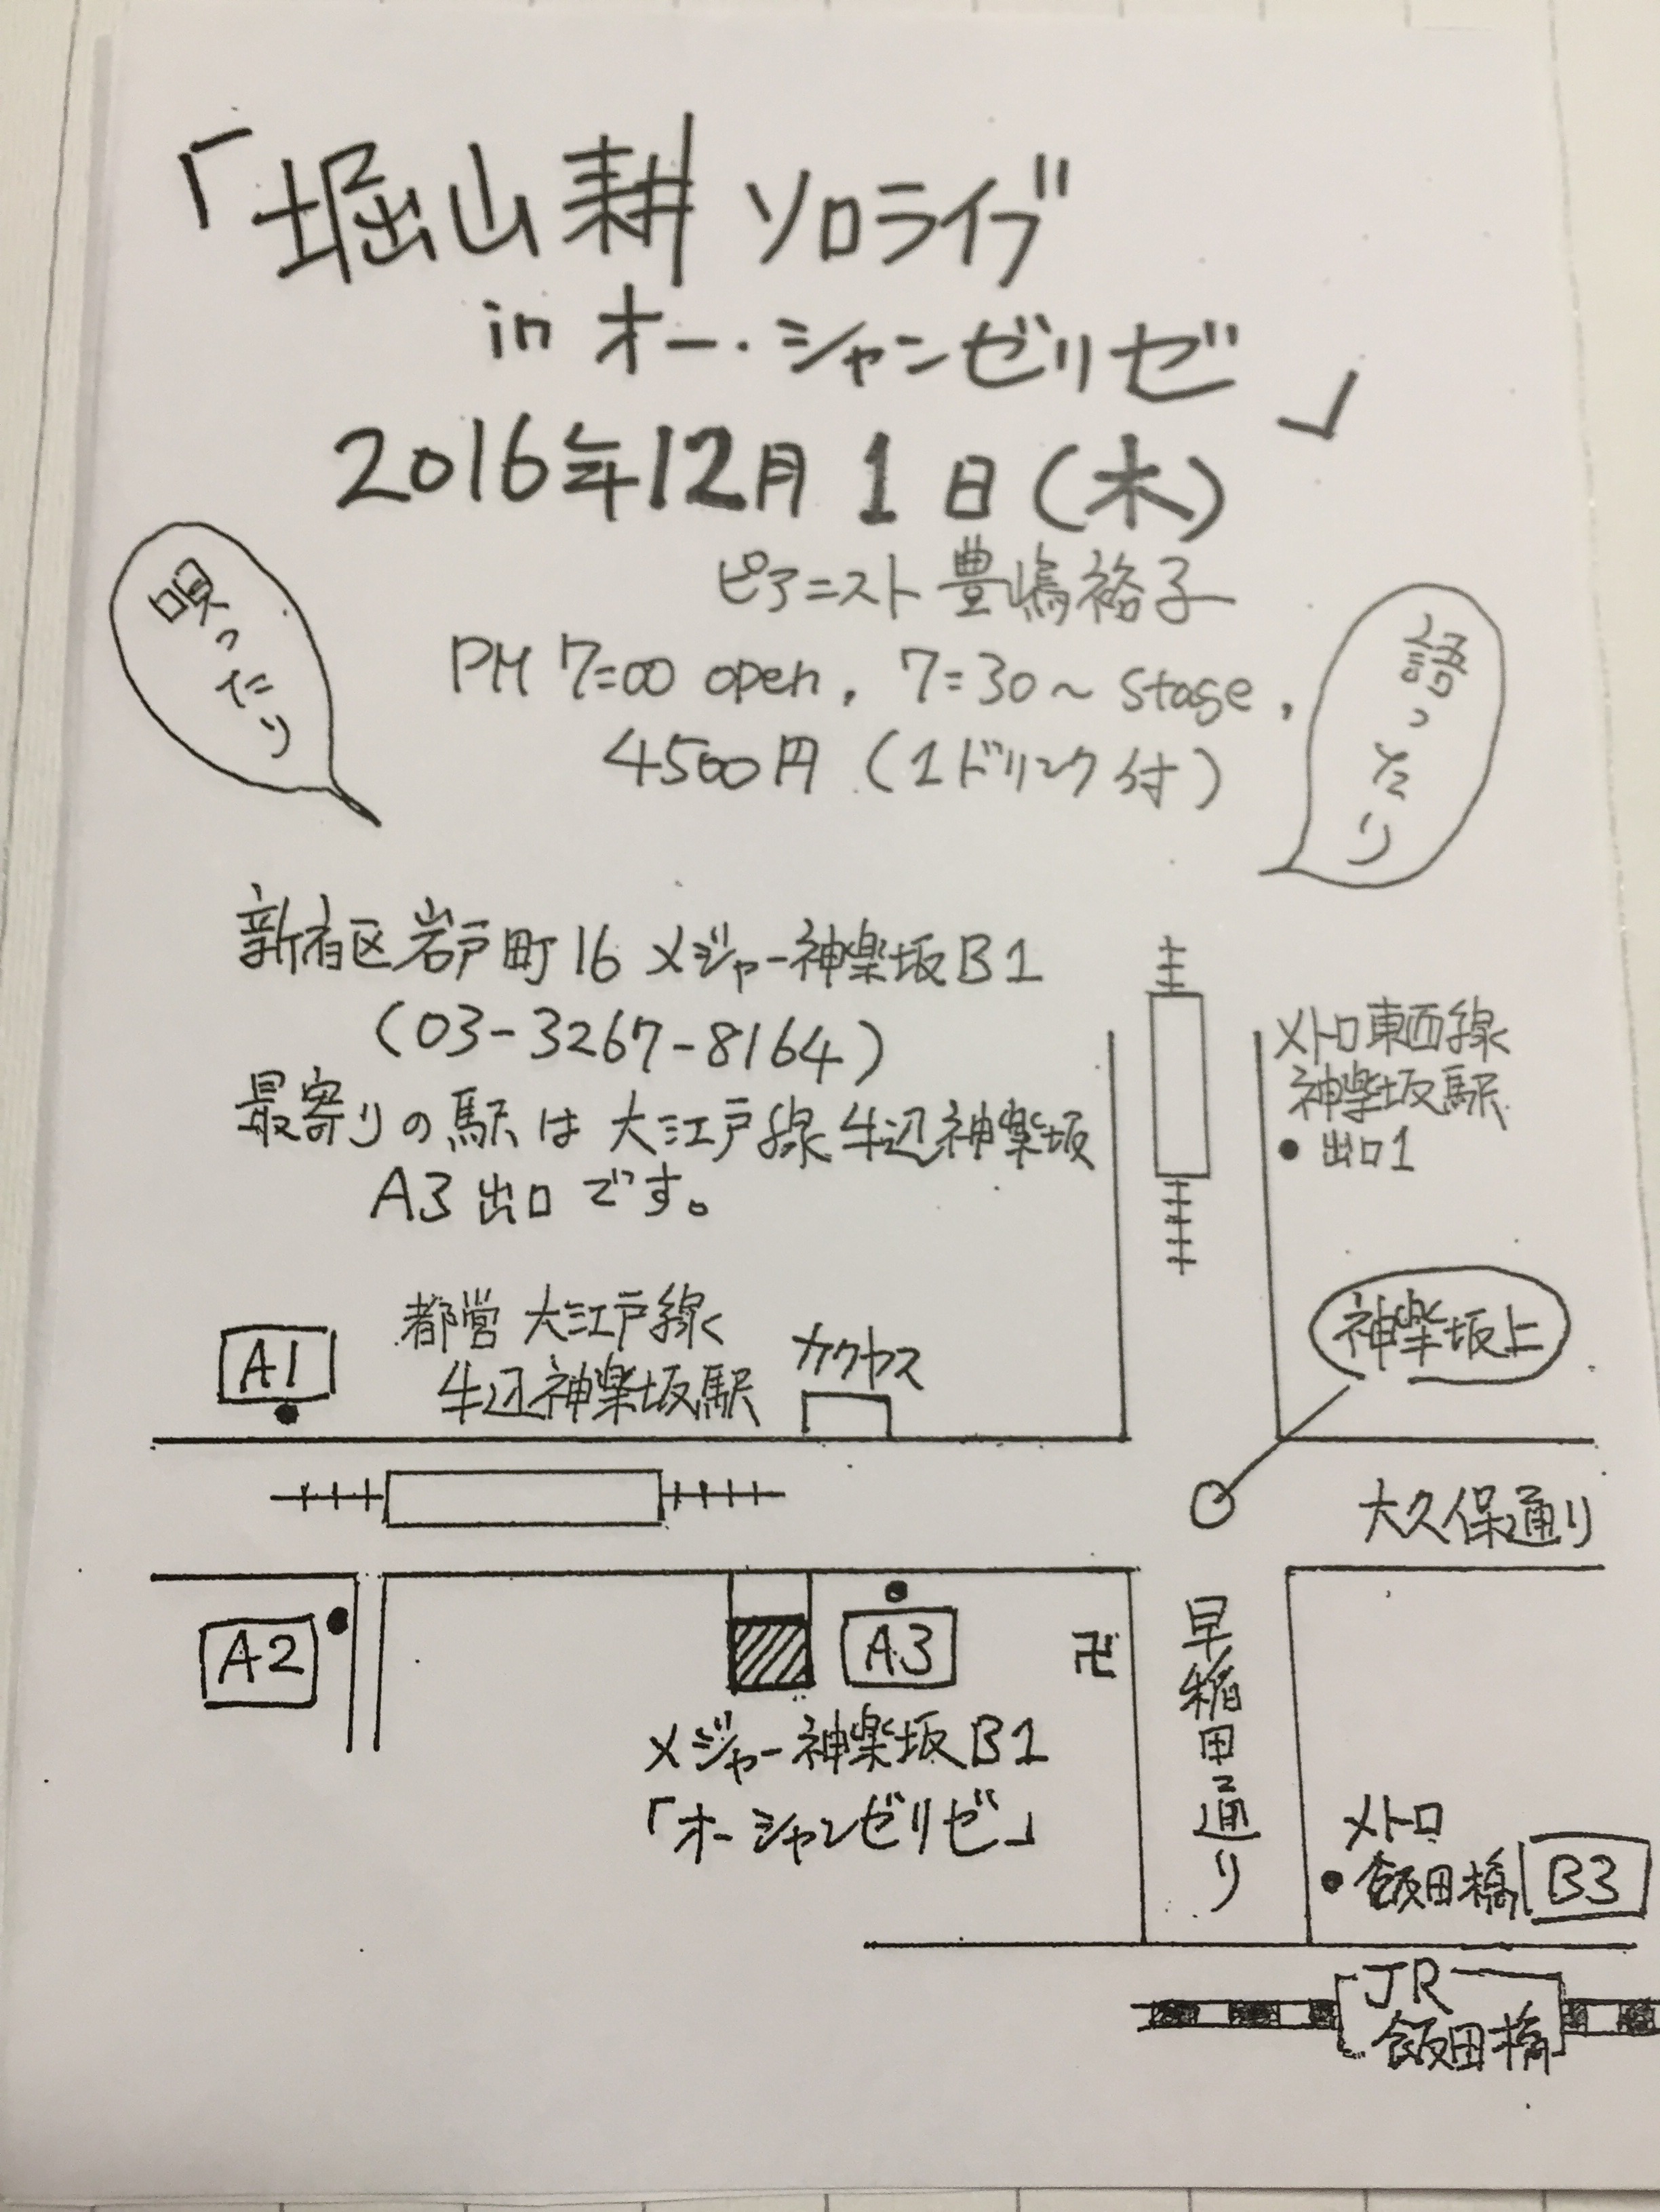 「堀山耕 ソロライブ
in オー・シャンゼリゼ」
2016年12月1日(木)
ピアニスト 豊嶋裕子
PM 7=00 open, 7=30~ stage,
4500円 (1ドリンク付)
唄ったり
語ったり
新宿区岩戸町16 メジャー神楽坂B1
(03-3267-8164)
最寄りの駅は 大江戸線 牛込神楽坂
A3 出口です。
メトロ東西線
神楽坂駅
出口1
神楽坂上
都営 大江戸線
牛込神楽坂駅
カクヤス
A1
大久保通り
A2
A3
卍
早稲田通り
メジャー神楽坂B1
「オーシャンゼリゼ」
メトロ
飯田橋 B3
JR
飯田橋